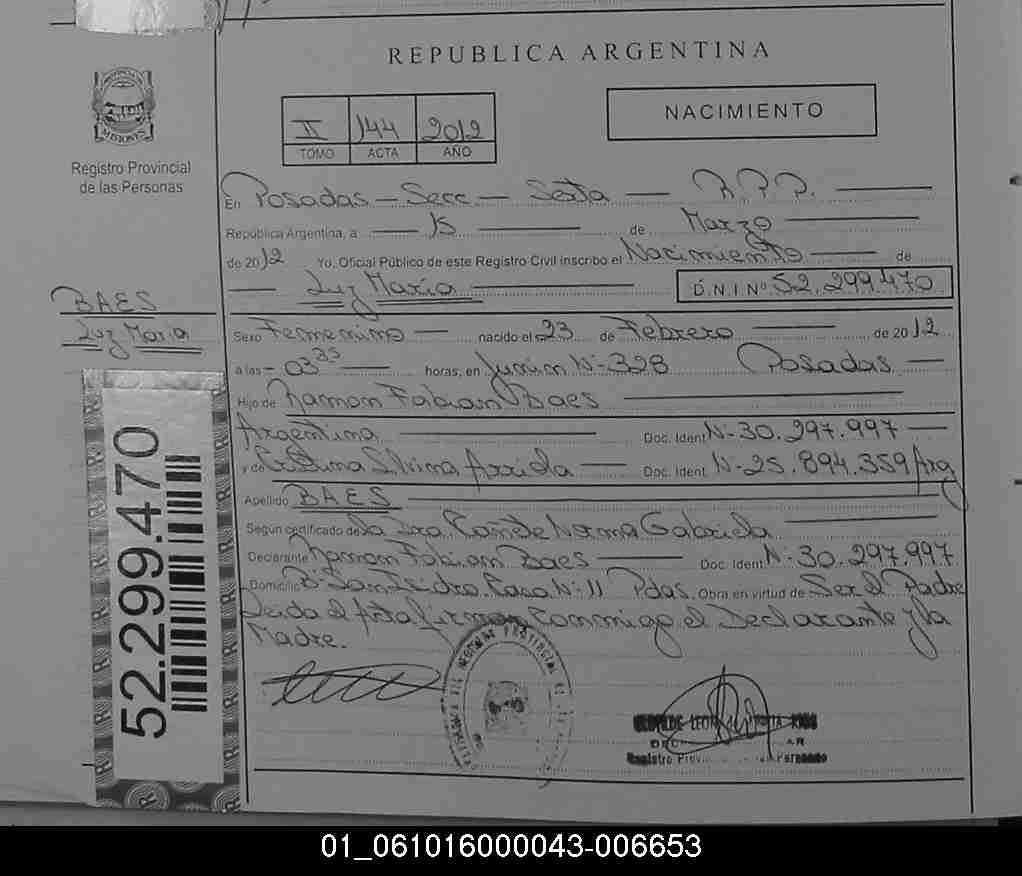 REPUBLICA ARGENTINA
MISIONES
Registro Provincial
de las Personas
II 144 2012
TOMO ACTA AÑO
NACIMIENTO
En Posadas - Secc - Sexta - R.P.P.
República Argentina, a 15 de Marzo
de 2012 Yo, Oficial Público de este Registro Civil inscribo el Nacimiento de
Luz María D.N.I Nº 52.299.470
BAES
Luz Maria
Sexo Femenino - nacido el 23 de Febrero de 2012
a las - 03 35 horas, en Junin Nº 328 Posadas -
Hijo de Ramon Fabian Baes
Argentina Doc. Ident. Nº 30.297.997 -
y de Cristina Silvina Arriola - Doc. Ident. Nº 25.894.359 Arg
Apellido BAES
Según certificado de la Dra. Cañete Norma Gabriela
Declarante Ramon Fabian Baes Doc. Ident. Nº 30.297.997
Domicilio Bº San Isidro. Casa Nº 11 Pdas. Obra en virtud de Ser el Padre
Leida el Acta firman Conmigo el Declarante y la
Madre.
52.299.470
REGISTRO PROVINCIAL DE
Registro
01_061016000043-006653